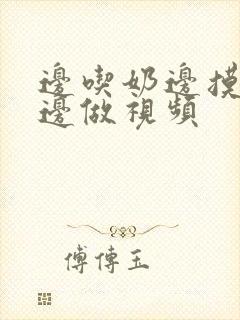 邊喫奶邊摸
邊做視頻
傅傳玉